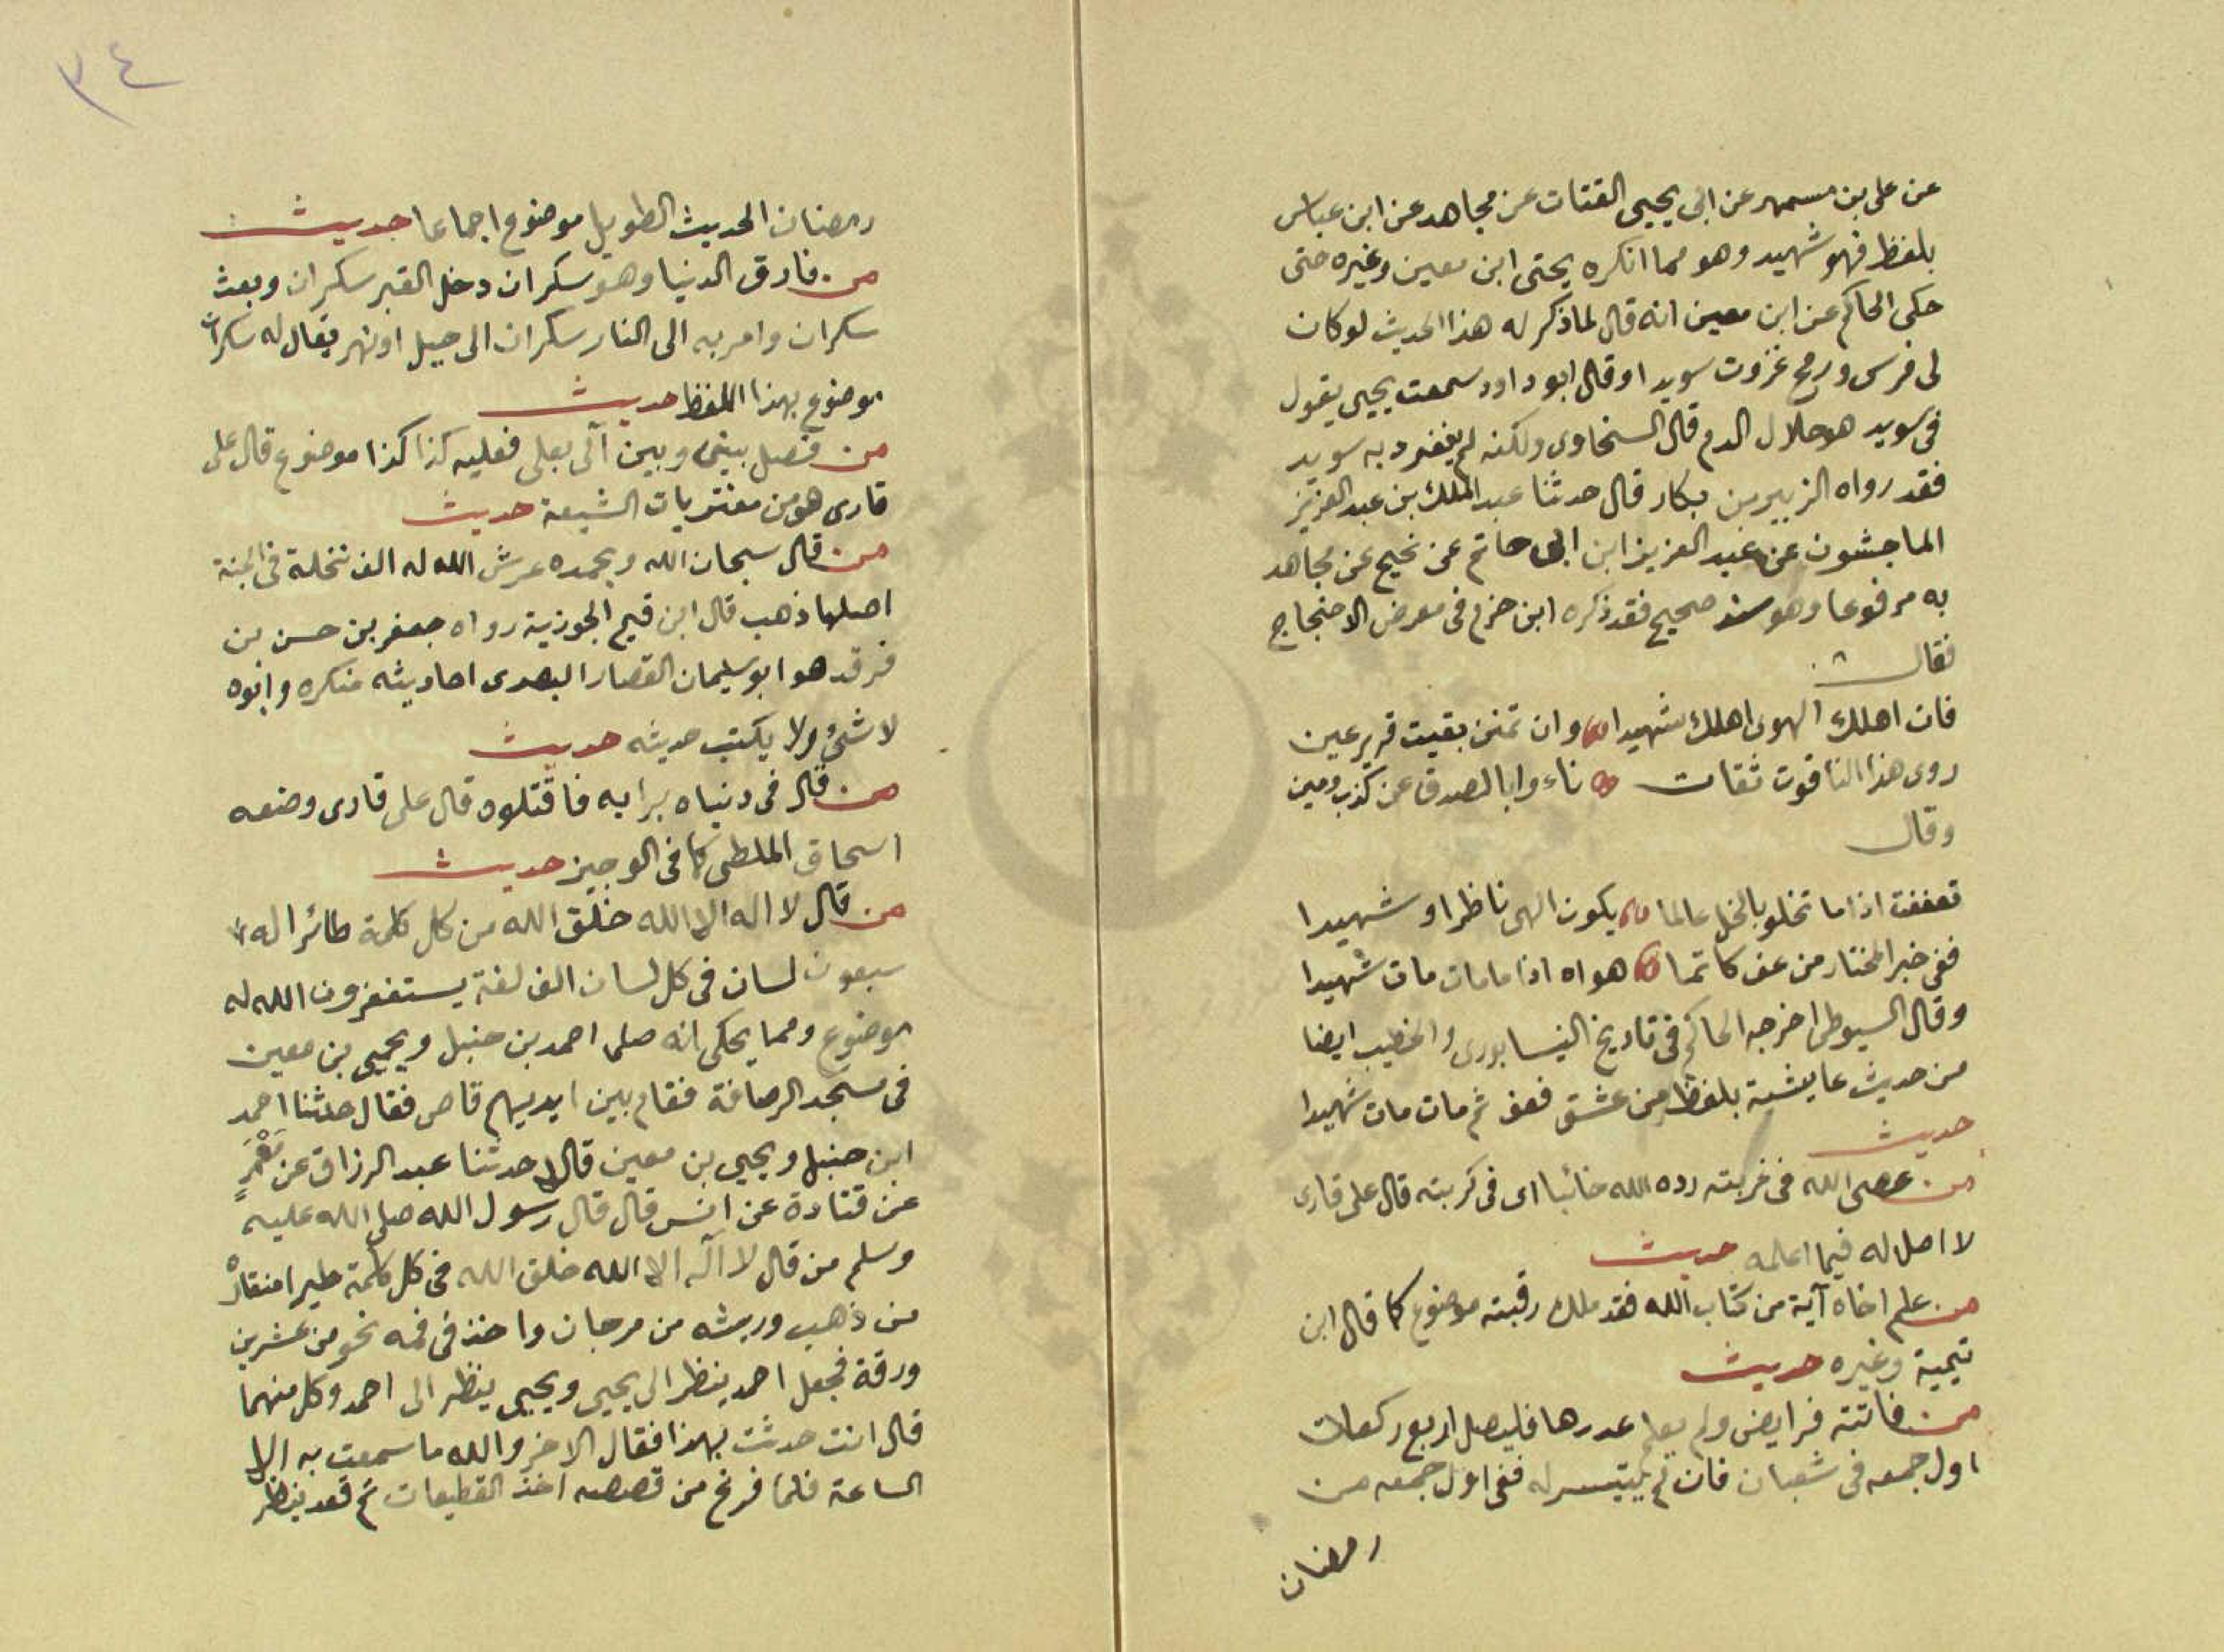 عن على بن مسهر عن ابى يحيى القتات عن مجاهد عن ابن عباس
بلفظ فهو شهيد وهو مما انكره يحتى ابن معين وغيره حتى
حكى الحاكم عن ابن معين انه قال لما ذكر له هذا الحديث لو كان
لى فرس ورمح غزوت سويدا وقال ابو داود سمعت يحيى يقول
فى سويد هو حلال الدم قال السخاوى ولكنه لم يتفرد به سويد
فقد رواه الزبير بن بكار قال حدثنا عبد الملك بن عبد العزيز
الماجشون عن عبد العزيز ابن ابى حاتم عن نجيح عن مجاهد
به مرفوعا وهو سند صحيح فقد ذكره ابن حزم فى معرض الاحتجاج
فقال
فان اهلك الهوى اهلك شهيدا وان تمنن بقيت قرير عين
روى هذا لنا قوت ثقات ناءوا بالصدق عن كذب ومين
وقال
تعففت اذا ما تخلو بالخل عالما يكون الهى ناظرا وشهيدا
ففى خبر المختار من عف كاتما هواه اذا ما مات مات شهيدا
وقال السيوطى اخرجه الحاكم فى تاريخ النيسابورى والخطيب ايضا
من حديث عايشة بلفظ من عشق فعف ثم مات مات شهيدا
حديث
من عصى الله فى غربته رده الله خائبا اى فى كربته قال على قارى
لا اصل له فيما اعلمه حديث
من علم اخاه آية من كتاب الله فقد ملك رقبته موضوع كما قال ابن
تيمية وغيره حديث
من فاتته فرايض ولم يعلم عدرها فليصل اربع ركعات
اول جمعه فى شعبان فان لم يتيسر له ففى اول جمعه من
رمضان
٣٤
رمضان الحديث الطويل موضوع اجماعا حديث
من فارق الدنيا وهو سكران دخل القبر سكران وبعث
سكران وامر به الى النار سكران الى جبل او نهر يقال له سكران
موضوع بهذا اللفظ حديث
من فصل بينى وبين آلى بعلى فعليه كذا كذا موضوع قال على
قارى هو من مفتريات الشيعة حديث
من قال سبحان الله وبحمده غرش الله له الف نخلة فى الجنة
اصلها ذهب قال ابن قيم الجوزية رواه جعفر بن حسن بن
فرقد هو ابو سليمان القصار البصرى احاديثه منكره وابوه
لا شئ ولا يكتب حديثه حديث
من قال فى دنياه برايه فاقتلوه قال على قارى وضعه
اسحاق الملطى كما فى الوجيز حديث
من قال لا اله الا الله خلق الله من كل كلمة طائرا له
سبعون لسان فى كل لسان الف لغة يستغفرون الله له
موضوع ومما يحكى انه صلى احمد بن حنبل ويحيى بن معين
فى مسجد الرصافة فقام بين ايديهم قاص فقال حدثنا احمد
ابن حنبل ويحيى بن معين قالا حدثنا عبد الرزاق عن مَعْمَرٍ
عن قتادة عن انس قال قال رسول الله صلى الله عليه
وسلم من قال لا آله الا الله خلق الله فى كل كلمة طيرا منقاره
من ذهب وريشه من مرجان واخذ فى فمه نحو من عشرين
ورقة فجعل احمد ينظر الى يحيى ويحيى ينظر الى احمد وكل منهما
قال انت حدثت بهذا فقال الاخر والله ما سمعت به الا
الساعة فلما فرغ من قصصه اخذ القطيعات ثم قعد ينظر